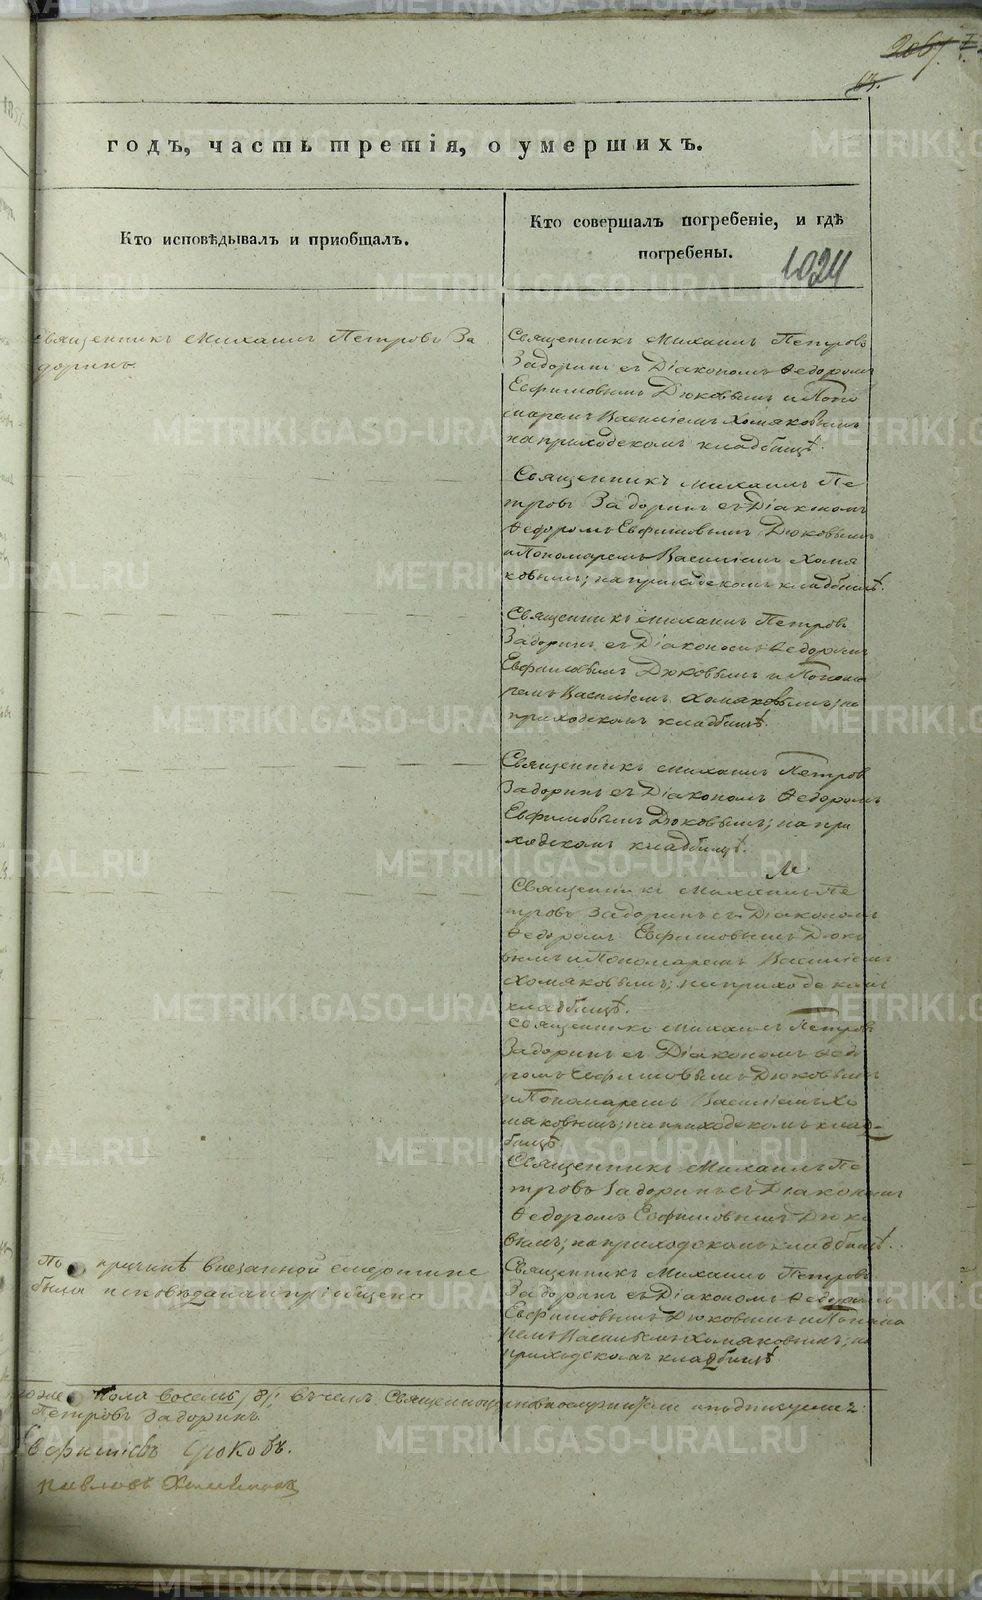 2067.
63.
годъ, часть третія, о умершихъ.
Кто исповѣдывалъ и приобщалъ.
Кто совершалъ погребеніе, и гдѣ
погребены.
1024
Священникъ Михаилъ Петровъ За
доринъ.
Священникъ Михаилъ Петровъ
Задоринъ съ Діакономъ Ѳедоромъ
Евфимовымъ Дюковымъ и Поно
маремъ Василіемъ Хомяковымъ
на приходскомъ кладбищѣ.
Священникъ Михаилъ Пе
тровъ Задоринъ съ Діакономъ
Ѳедоромъ Евфимовымъ Дюковымъ
и Пономаремъ Василіемъ Хомя
ковымъ; на приходскомъ кладбищѣ.
Священникъ Михаилъ Петровъ
Задоринъ съ Діакономъ Ѳедоромъ
Евфимовымъ Дюковымъ и Понома
ремъ Василіемъ Хомяковымъ; на
приходскомъ кладбищѣ.
Священникъ Михаилъ Петровъ
Задоринъ съ Діакономъ Ѳедоромъ
Евфимовымъ Дюковымъ; на при
ходскомъ кладбищѣ.
Священникъ Михаилъ Пе
тровъ Задоринъ съ Діакономъ
Ѳедоромъ Евфимовымъ Дюко
вымъ и Пономаремъ Василіемъ
Хомяковымъ; на приходскомъ
кладбищѣ.
Священникъ Михаилъ Петровъ
Задоринъ съ Діакономъ Ѳедо
ромъ Евфимовымъ Дюковымъ
и Пономаремъ Василіемъ Хо
мяковымъ; на приходскомъ клад
бищѣ
Священникъ Михаилъ Пе
тровъ Задоринъ съ Діакономъ
Ѳедоромъ Евфимовымъ Дюко
вымъ; на приходскомъ кладбищѣ.
По причинѣ внезапной смерти не
была исповѣдана и пріобщена
Священникъ Михаилъ Петровъ
Задоринъ съ Діакономъ Ѳедоромъ
Евфимовымъ Дюковымъ и Понома
ремъ Василіемъ Хомяковымъ; на
приходскомъ кладбищѣ
пола восемь /8/; въ чемъ Священноцерковнослужители и подписуемся:
Петровъ Задоринъ.
Евфиміевъ Дюковъ.
Павловъ Хомяковъ
METRIKI.GASO-URAL.RU